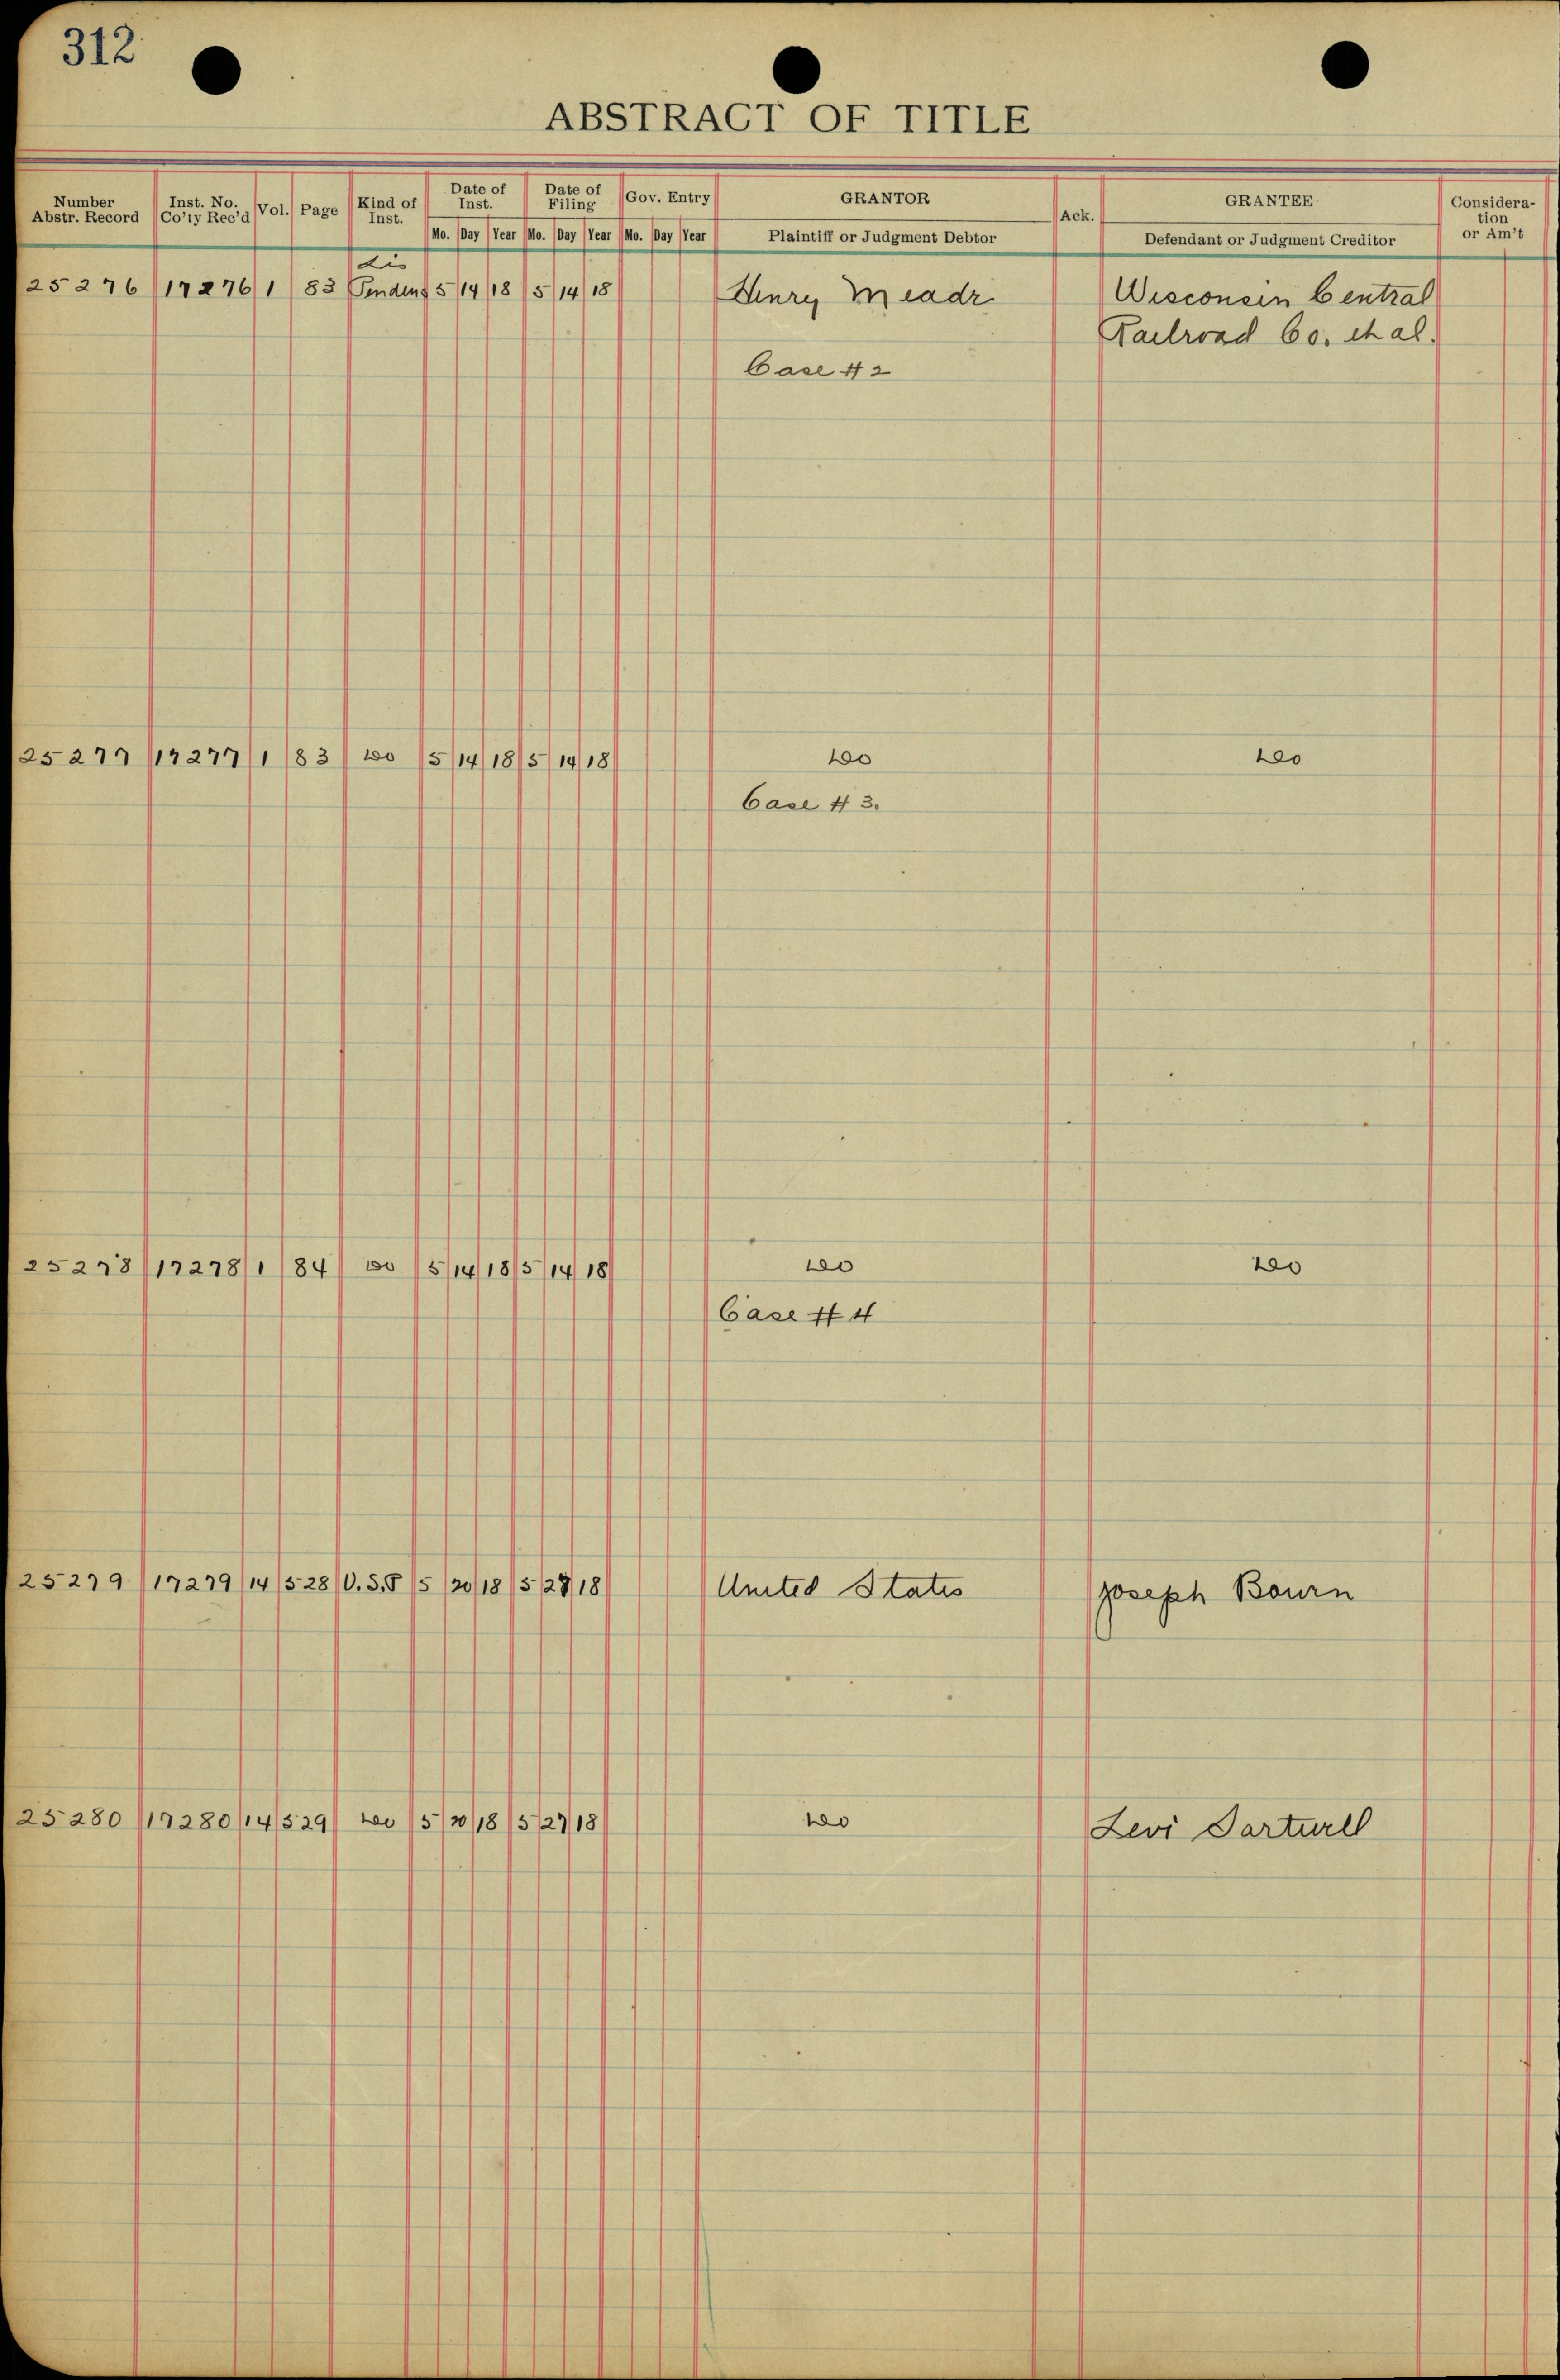 312
ABSTRACT OF TITLE
Number Abstr. Record | Inst. No. Co'ty Rec'd | Vol. | Page | Kind of Inst. | Date of Inst. | Date of Filing | Gov. Entry | GRANTOR | Ack. | GRANTEE | Consideration or Am't
Mo. Day Year Mo. Day Year Mo. Day Year | Plaintiff or Judgment Debtor | Defendant or Judgment Creditor
Lis
25276 17276 1 83 Pendens 5 14 18 5 14 18 Henry Meadr Wisconsin Central
Railroad Co. et al.
Case #2
25277 17277 1 83 do 5 14 18 5 14 18 do do
Case #3.
25278 17278 1 84 do 5 14 18 5 14 18 do do
Case #4
25279 17279 14 528 U.S.P 5 20 18 5 27 18 United States Joseph Bourn
25280 17280 14 529 do 5 20 18 5 27 18 do Levi Sarturll